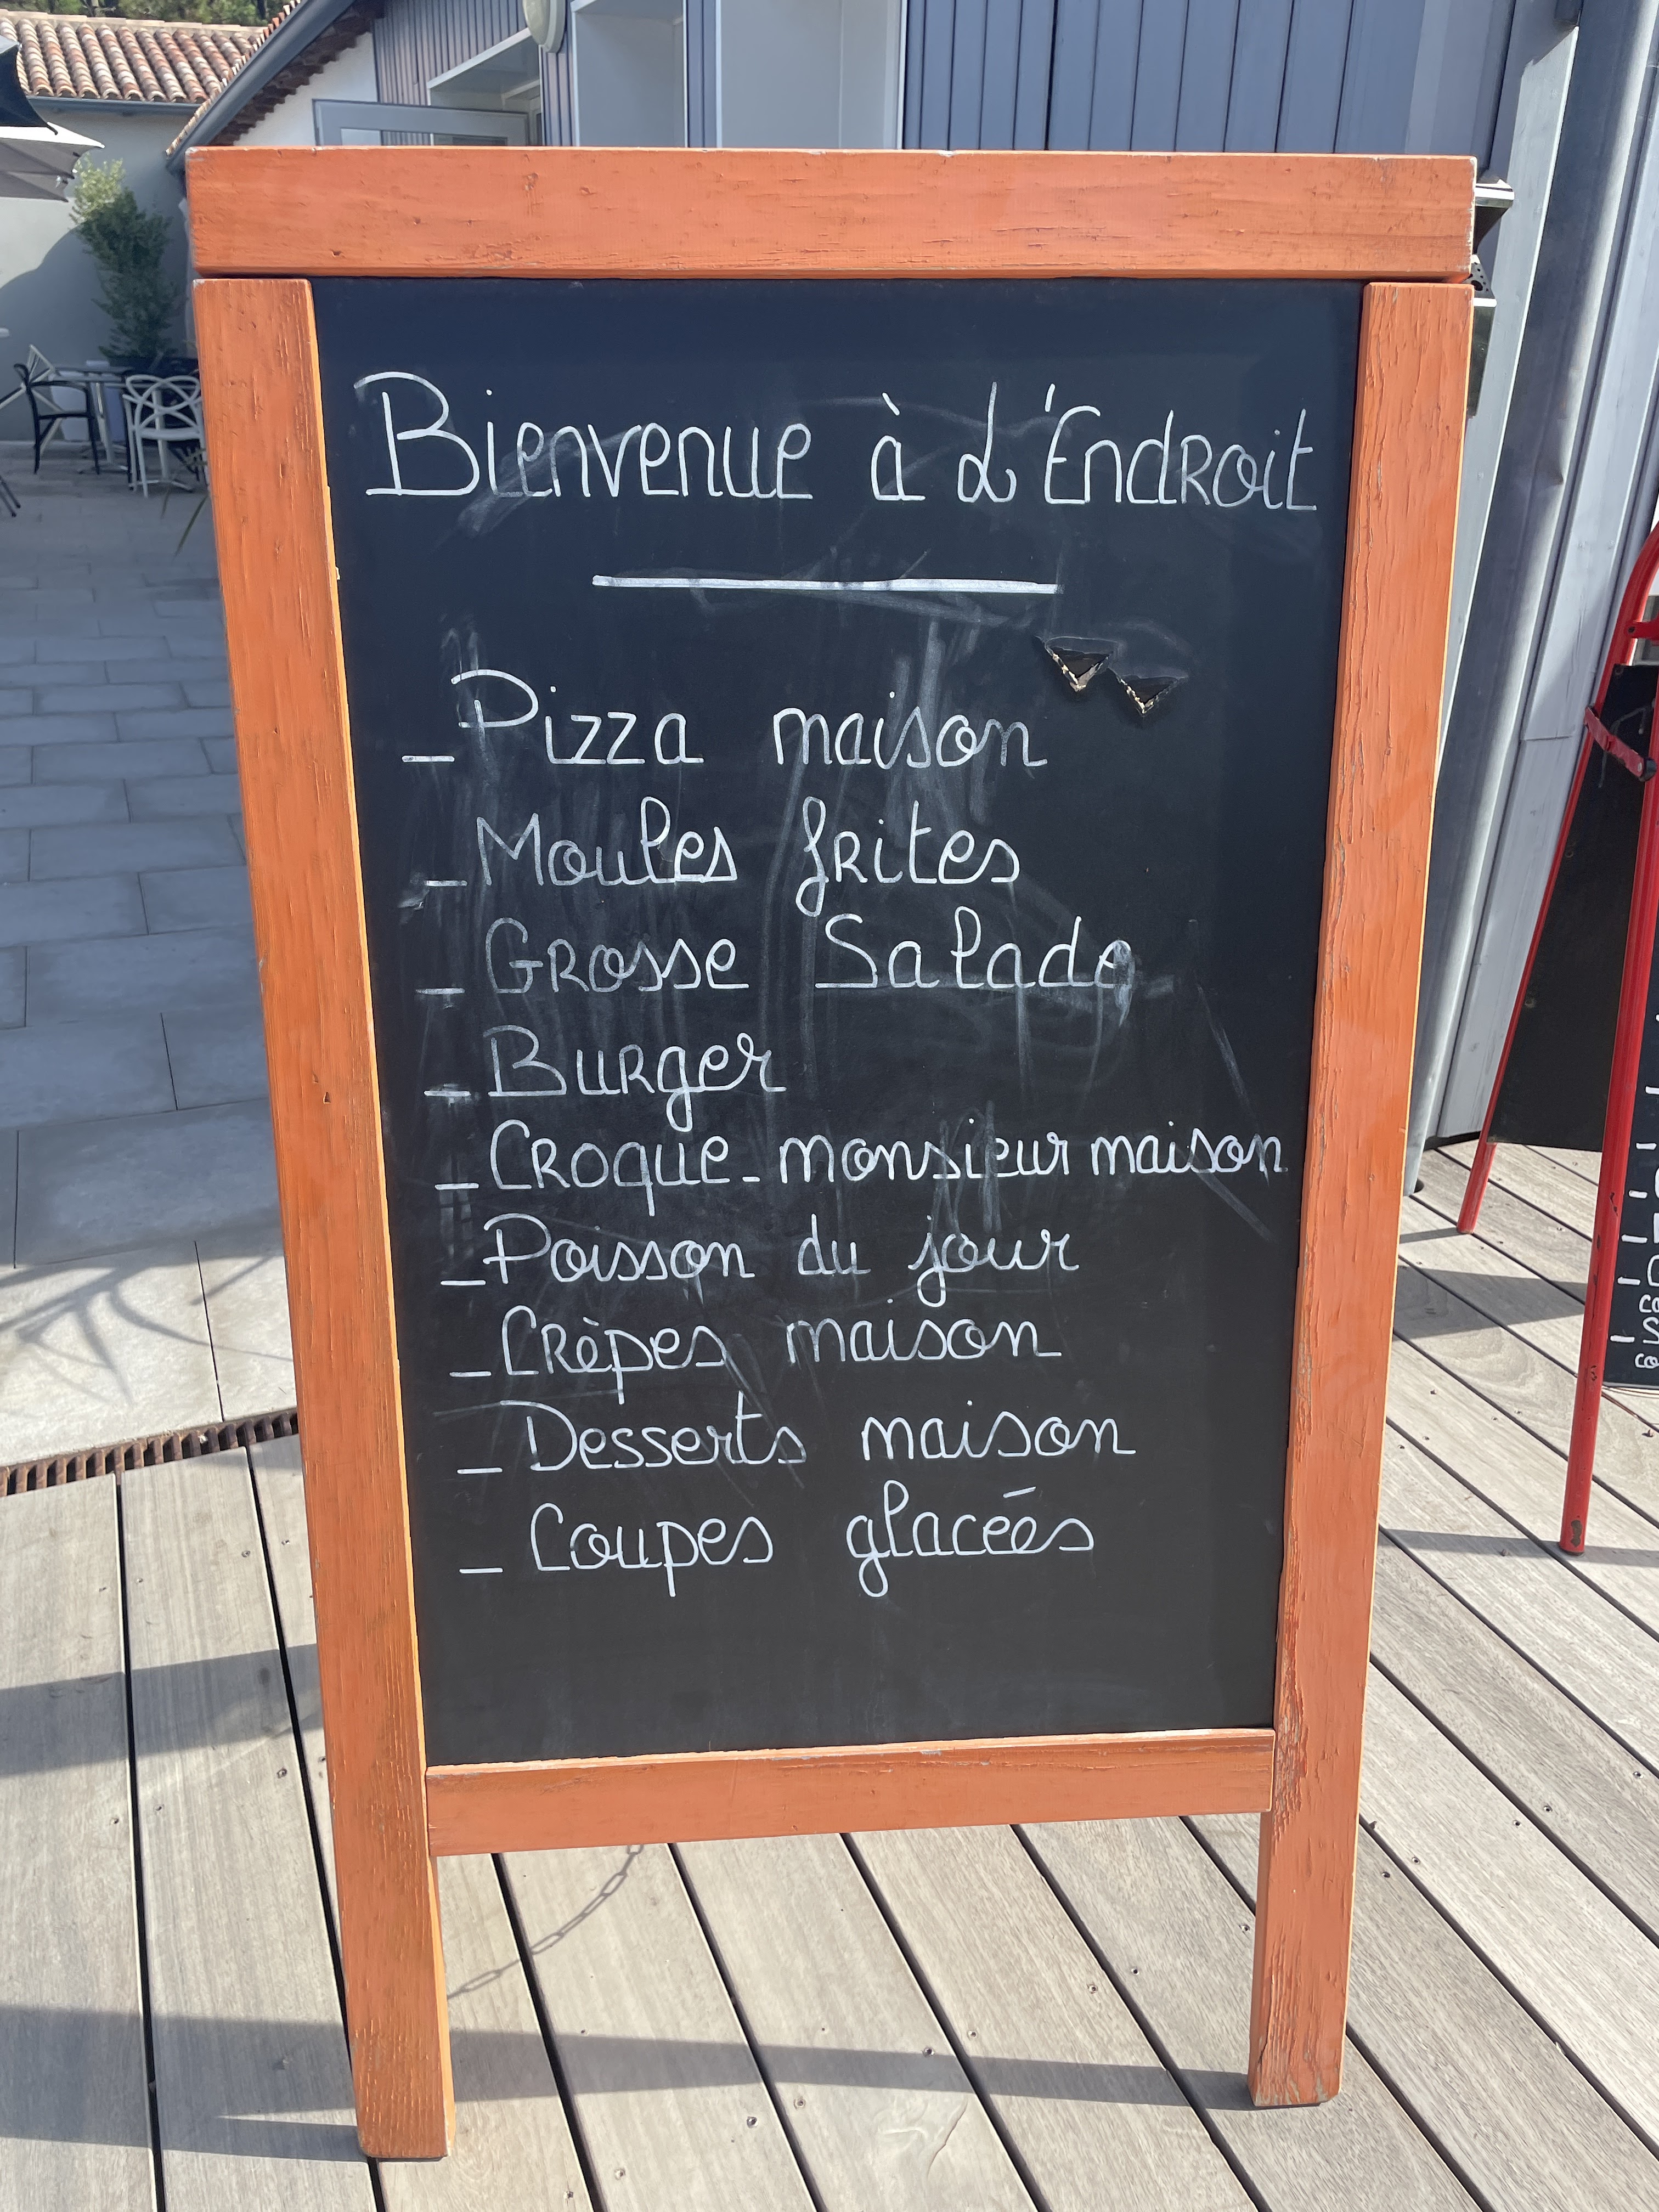 Bienvenue à L'Endroit
_ Pizza maison
_ Moules frites
_ Grosse Salade
_ Burger
_ Croque-monsieur maison
_ Poisson du jour
_ Crèpes maison
_ Desserts maison
_ Coupes glacées